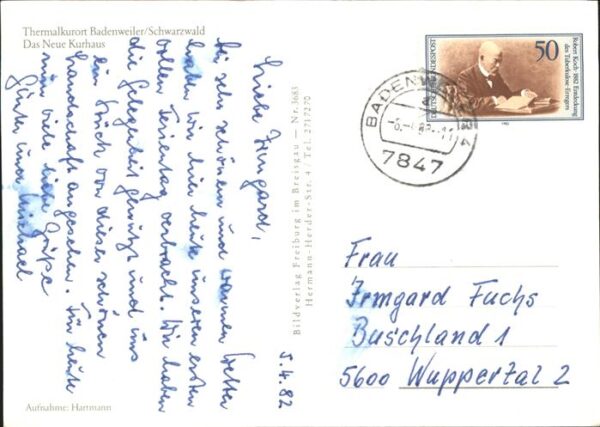 Thermalkurort Badenweiler/Schwarzwald
Das Neue Kurhaus
5.4.82
Liebe Irmgard,
bei sehr schönem und warmem Wetter
haben wir hier heute unseren ersten
vollen Ferientag verbracht. Wir haben
die Gelegenheit genutzt und uns
ein Stück von dieser schönen
Landschaft angesehen. Für heute
nun viele liebe Grüße
Michael
Aufnahme: Hartmann
Bildverlag Freiburg im Breisgau — Nr. 3683
Hermann-Herder-Str. 4 / Tel. 2717270
DEUTSCHE BUNDESPOST
50
Robert Koch · 1882 Entdeckung
des Tuberkulose-Erregers
1982
BADENWEILER
7847
Frau
Irmgard Fuchs
Buschland 1
5600 Wuppertal 2